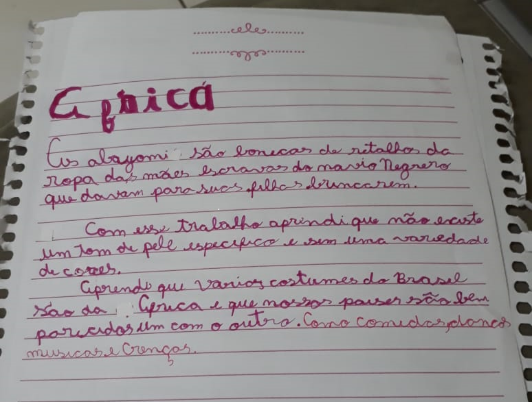 Africa
As abayomi são bonecas de retalhos da
ropa das mães escravas do navio Negrero
que davam para suas filhas brincarem.
Com esse trabalho aprindi que não existe
um tom de pele especifico e sim uma variedade
de cores.
Aprendi que varios costumes do Brasil
são da Africa e que nossos paises são bem
parecidos um com o outro. Como comidas, danças
musicas e Crenças.